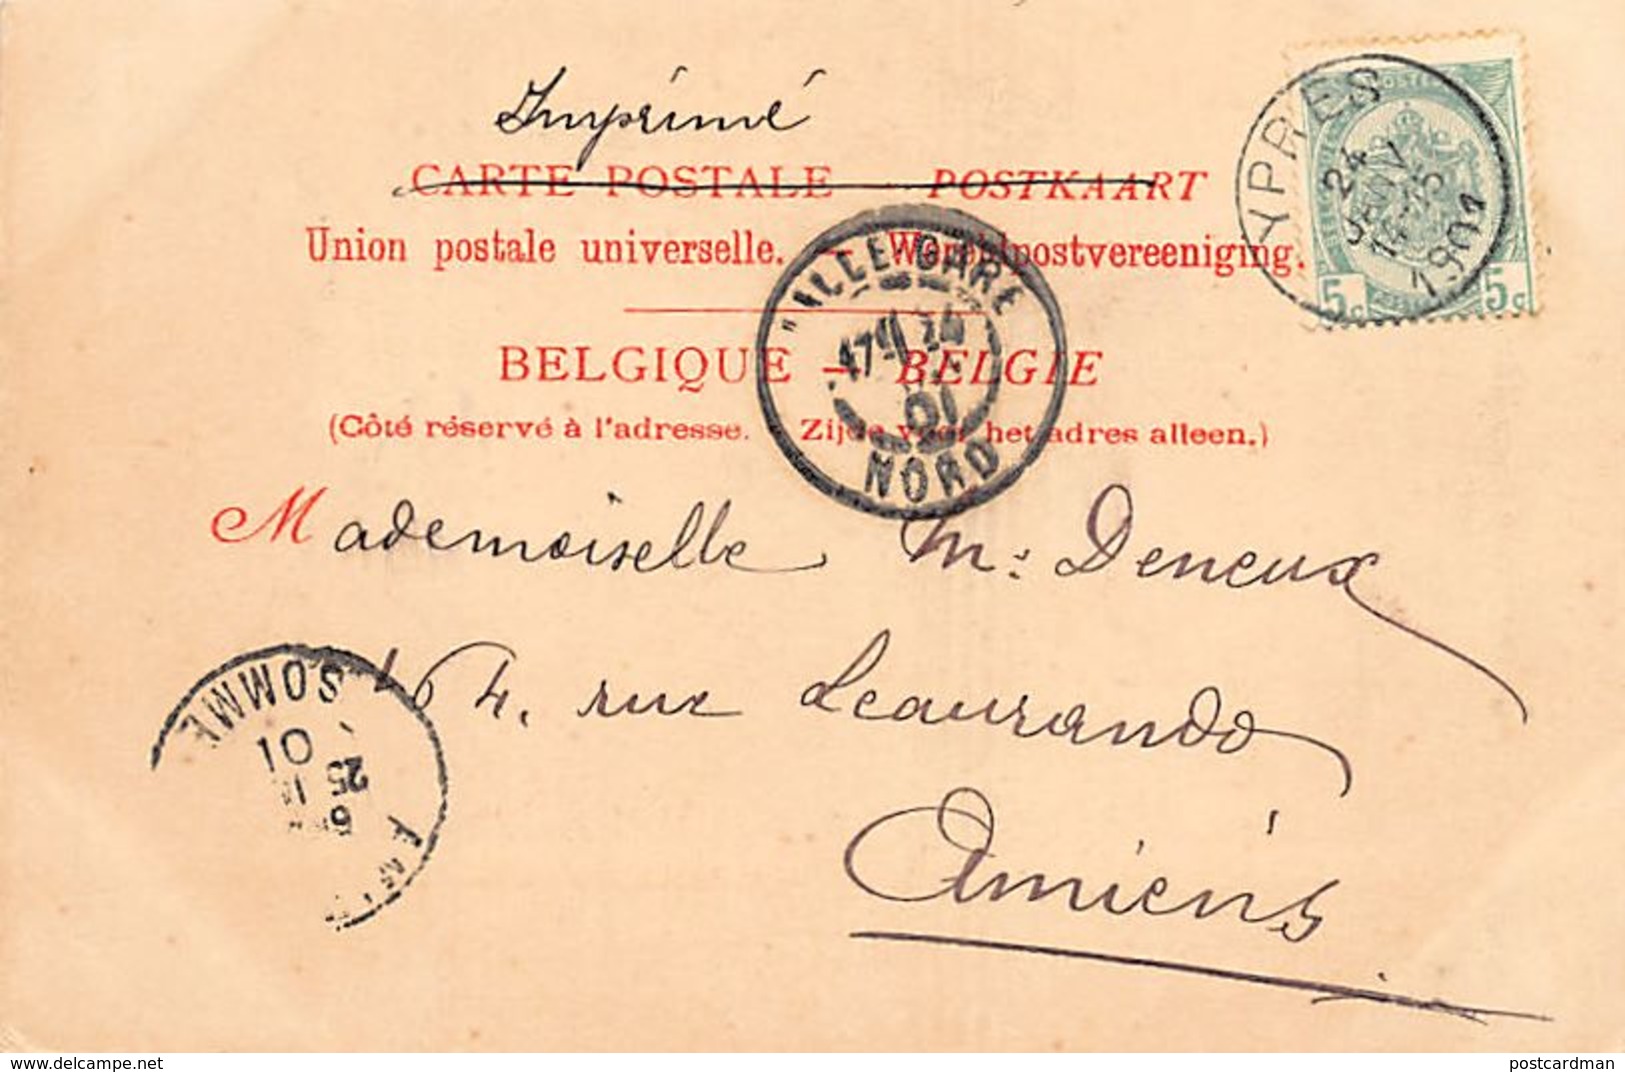 Imprimé
CARTE POSTALE – POSTKAART
Union postale universelle. – Wereldpostvereeniging.
BELGIQUE – BELGIE
(Côté réservé à l'adresse. Zijde voor het adres alleen.)
Mademoiselle M. Deneux
164, rue Leaurando
Amiens
YPRES
24
JANV
1901
5c 5c
LILLE-GARE
01
NORD
SOMME
25
01
www.delcampe.net
postcardman